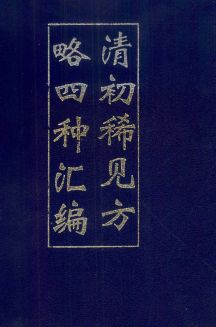 清初稀见方
略四种汇编